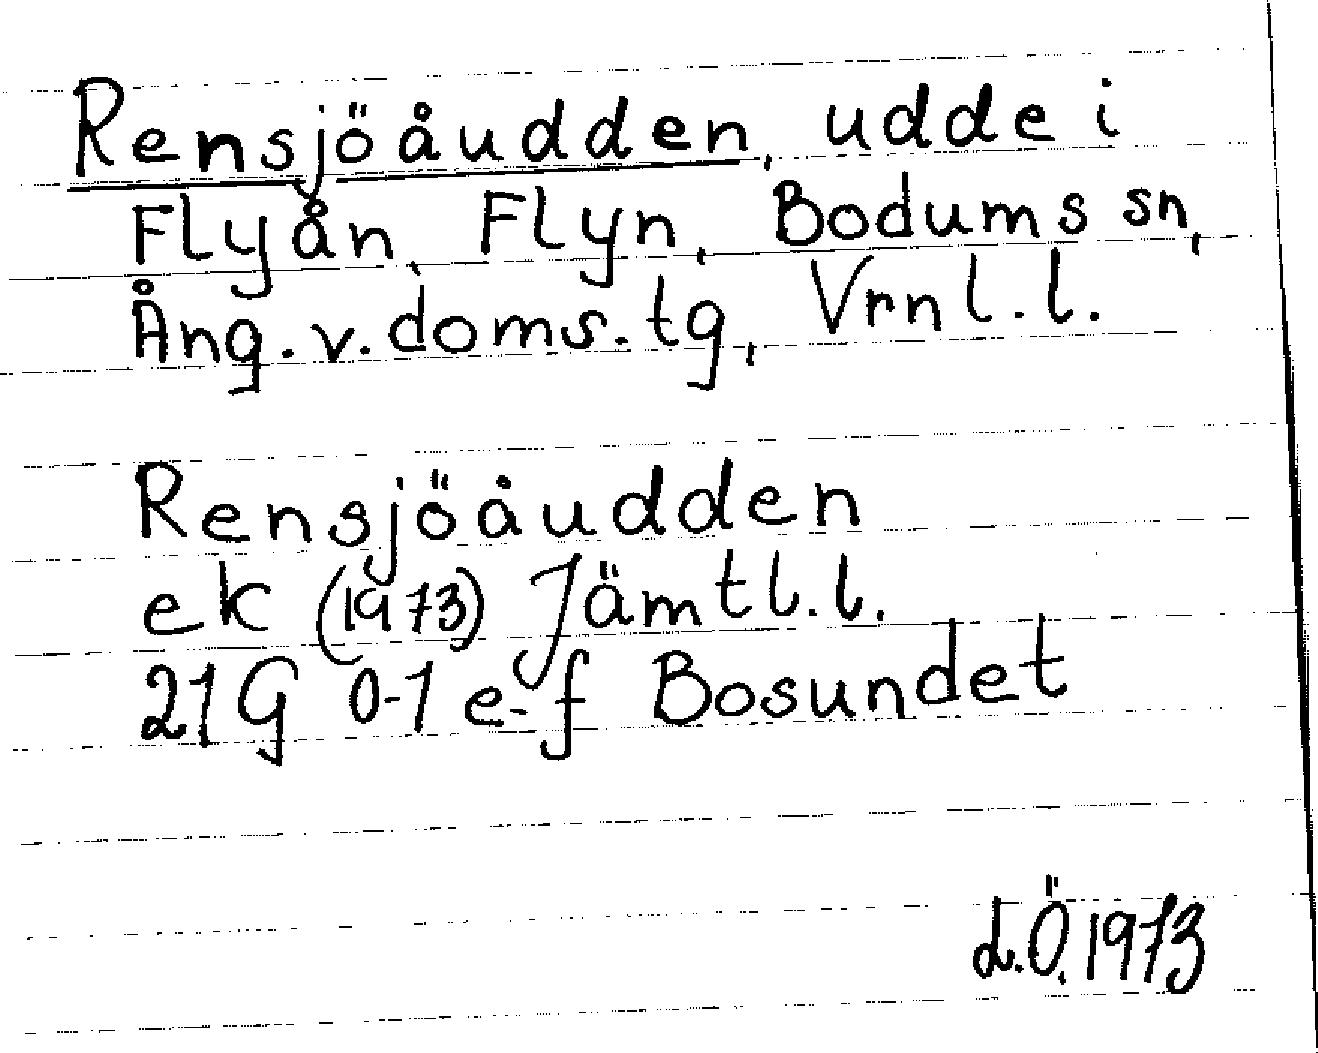 Rensjöåudden, udde i
Flyån, Flyn, Bodums sn,
Ång. v. doms. tg, Vrnl. l.
Rensjöåudden
ek (1973) Jämtl. l.
21G 0-1 e-f Bosundet
L.Ö. 1973